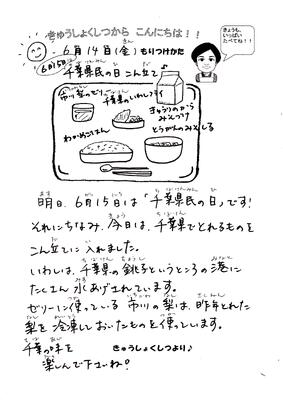 きゅうしょくしつから こんにちは！！
きょうも、
いっぱい
たべてね！！
6月14日(金) もりつけかた
6月15日
千葉県民の日 こんだて
千葉県のいわし
きゅうりのから
みそつけ
わかめごはん
とうがんのみそしる
明日、6月15日は「千葉県民の日」です！
それにちなみ、今日は、千葉県でとれるものを
こん立てに 入れました。
いわしは、千葉県の銚子というところの港に
たくさん 水あげされています。
ゼリーに使っている 市川の梨は、昨年とれた
梨を冷凍しておいたものを使っています。
千葉の味を
楽しんで下さいね？
きゅうしょくしつより♪